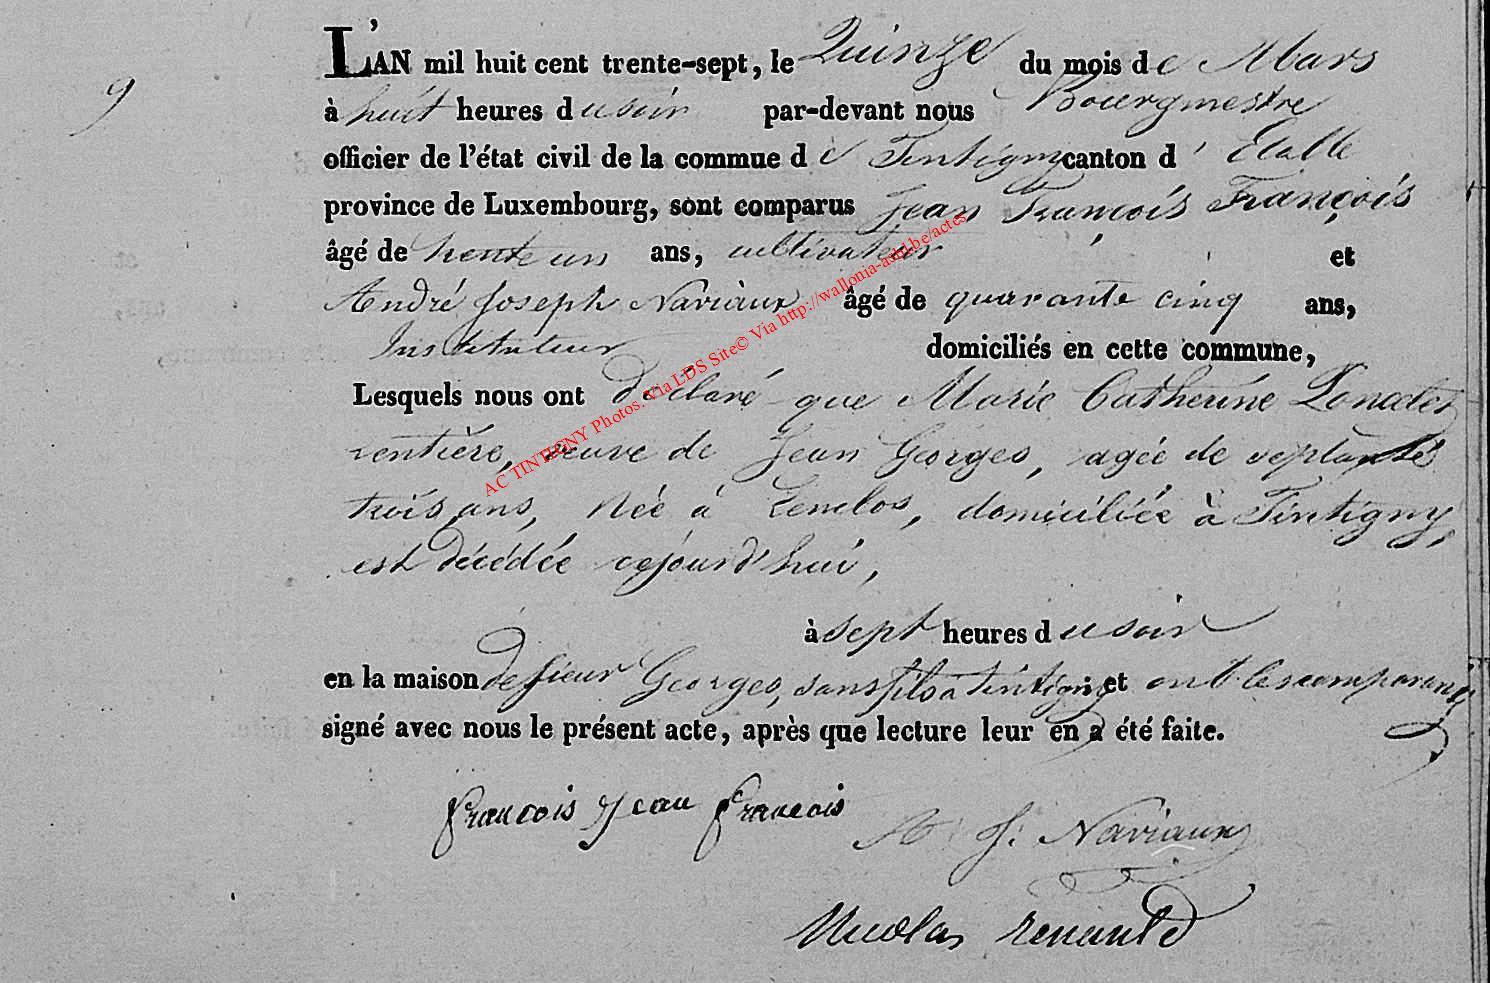 9
L'AN mil huit cent trente-sept, le Quinze du mois de Mars
à huit heures du soir par-devant nous Bourgmestre
officier de l'état civil de la commue de Tintigny canton d'Etalle
province de Luxembourg, sont comparus Jean François François
âgé de trente un ans, cultivateur et
André Joseph Naviaux âgé de quarante cinq ans,
Instituteur domiciliés en cette commune,
Lesquels nous ont déclaré que Marie Catherine
rentière, veuve de Jean Georges, agée de septante
trois ans, Née à Lenclos, domiciliée à Tintigny,
est décédée cejourd'hui,
à sept heures du soir
en la maison de sieur Georges, sans fils à Tintigny et ont les comparans
signé avec nous le présent acte, après que lecture leur en a été faite.
francois Jean francois
A J: Naviaux
Nicolas renauld
AC TINTIGNY Photos. Via LDS Site© Via http://wallonia-asbl.be/actes